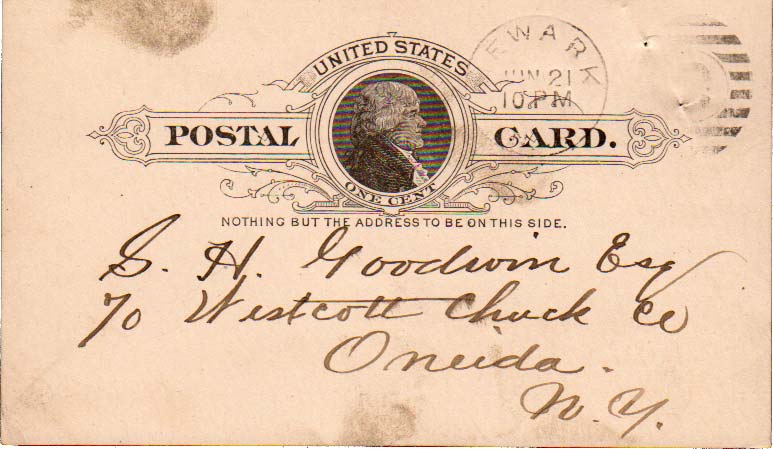 UNITED STATES
POSTAL CARD.
ONE CENT
EWARK
JUN 21
10 PM
NOTHING BUT THE ADDRESS TO BE ON THIS SIDE.
S. H. Goodwin Esq
70 Westcott Chuck Co
Oneida.
N. Y.